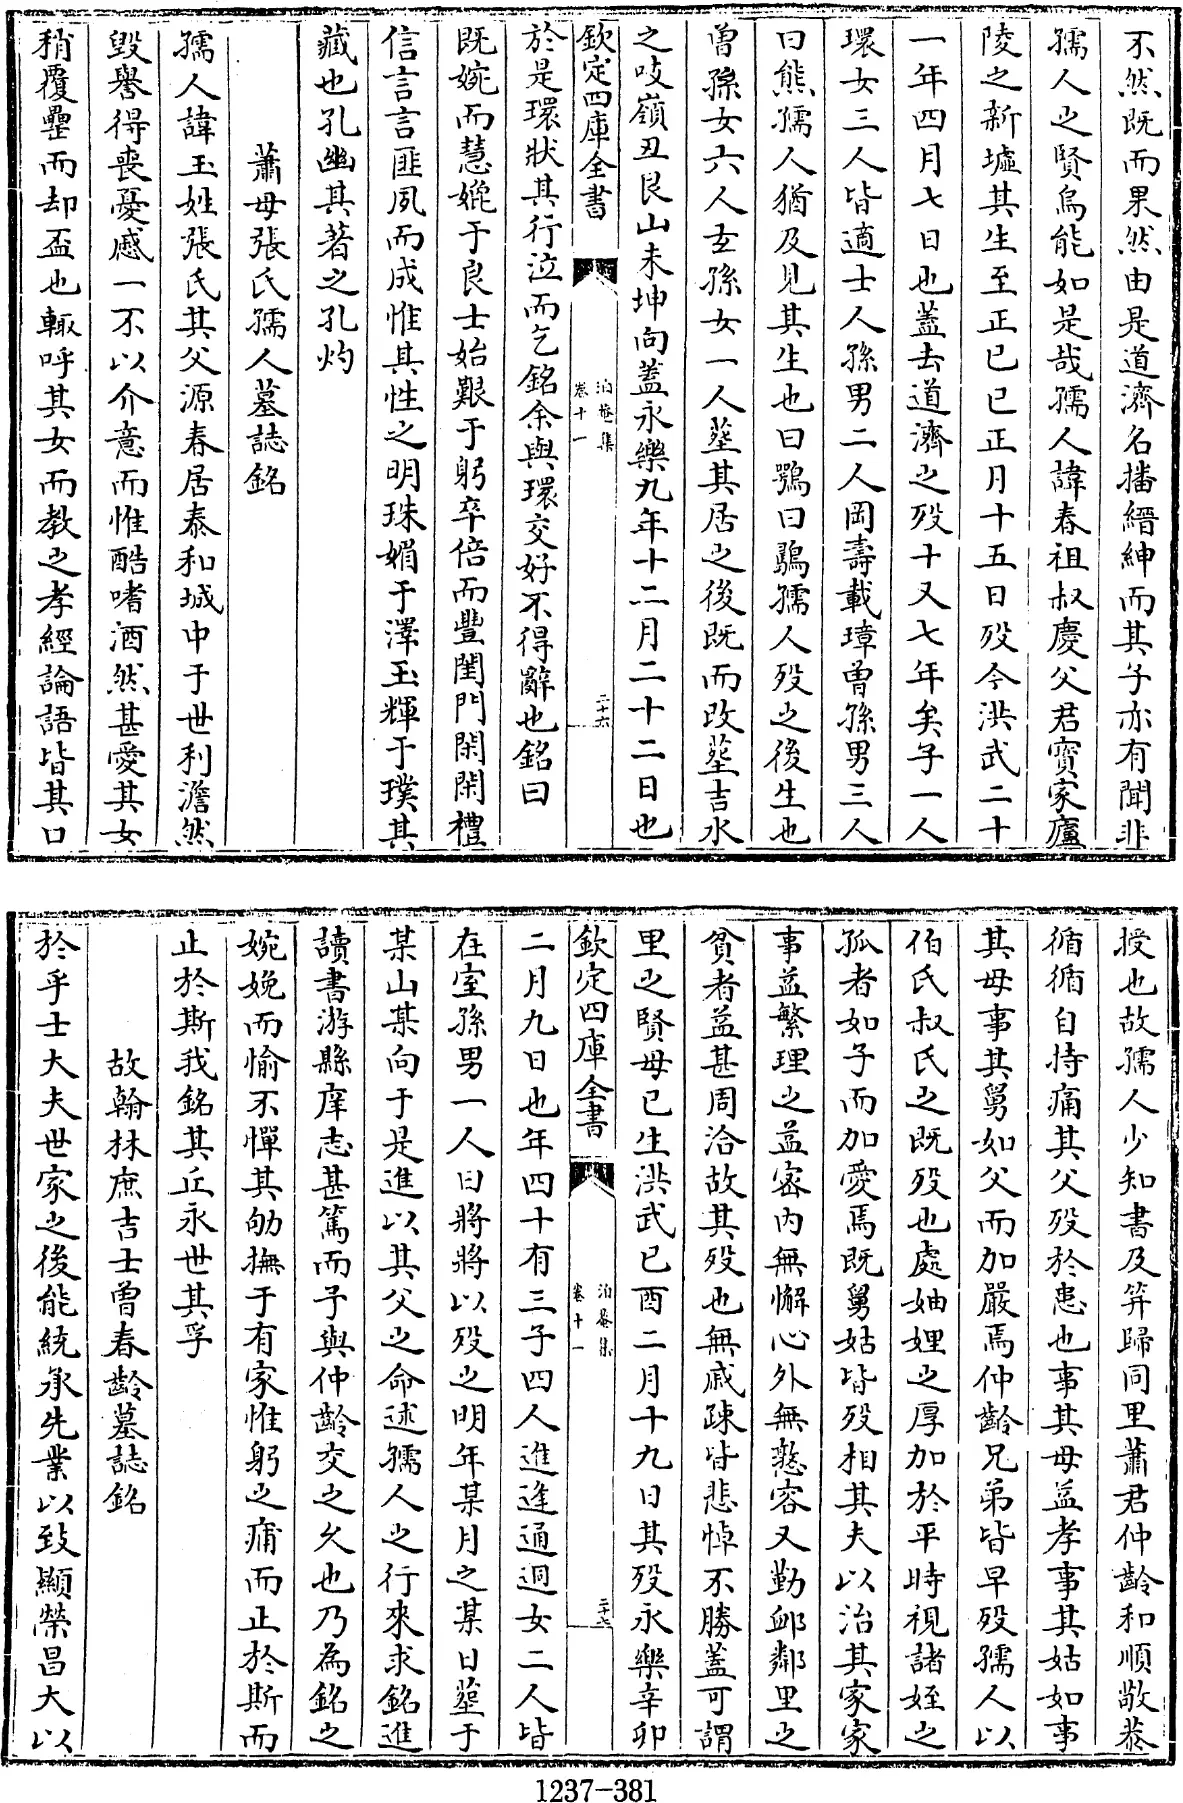 不然既而果然由是道濟名播縉紳而其子亦有聞非
孺人之賢烏能如是哉孺人諱春祖叔慶父君寶家廬
陵之新墟其生至正己巳正月十五日歿今洪武二十
一年四月七日也蓋去道濟之歿十又七年矣子一人
環女三人皆適士人孫男二人岡壽載璋曾孫男三人
曰熊孺人猶及見其生也曰鶚曰鷂孺人歿之後生也
曾孫女六人玄孫女一人塟其居之後既而改塟吉水
之吱嶺丑艮山未坤向蓋永樂九年十二月二十二日也
欽定四庫全書
泊菴集
卷十一
二十六
於是環狀其行泣而乞銘余與環交好不得辭也銘曰
既婉而慧嫓于良士始艱于躬卒倍而豐閨門閑閑禮
信言言匪夙而成惟其性之明珠媚于澤玉輝于璞其
藏也孔幽其著之孔灼
蕭母張氏孺人墓誌銘
孺人諱玉姓張氏其父源春居泰和城中于世利澹然
毀譽得喪憂慼一不以介意而惟酷嗜酒然甚愛其女
稍覆罍而却盃也輙呼其女而教之孝經論語皆其口
授也故孺人少知書及笄歸同里蕭君仲齡和順敬恭
循循自持痛其父歿於患也事其母益孝事其姑如事
其母事其舅如父而加嚴焉仲齡兄弟皆早歿孺人以
伯氏叔氏之既歿也處妯娌之厚加於平時視諸姪之
孤者如子而加愛焉既舅姑皆歿相其夫以治其家家
事益繁理之益密內無懈心外無懟容又勤䘏鄰里之
貧者益甚周洽故其歿也無戚疎皆悲悼不勝蓋可謂
里之賢母已生洪武已酉二月十九日其歿永樂辛卯
欽定四庫全書
泊菴集
卷十一
二十七
二月九日也年四十有三子四人進逢通迥女二人皆
在室孫男一人曰將將以歿之明年某月之某日塟于
某山某向于是進以其父之命述孺人之行來求銘進
讀書游縣庠志甚篤而予與仲齡交之久也乃為銘之
婉娩而愉不憚其劬撫于有家惟躬之痡而止於斯而
止於斯我銘其丘永世其孚
故翰林庶吉士曾春齡墓誌銘
於乎士大夫世家之後能統承先業以致顯榮昌大以
1237-381